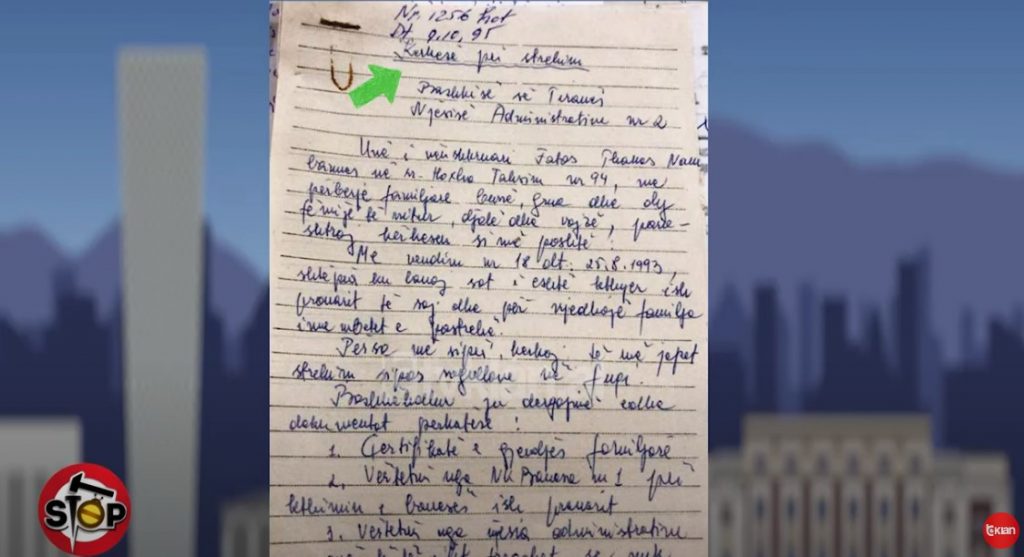 Nr. 1256 Prot
Dt. 9.10.95
Kerkesë për strehim
Bashkisë së Tiranës
Njësisë Administrative nr 2
Unë i nënshkruari Fatos Thanas Nano
banues në rr. Hoxha Tahsim nr 94, me
përbërje familjare burrë, grua dhe dy
fëmijë të mitur, djalë dhe vajzë, para-
shtroj kërkesën si më poshtë:
Me vendim nr 18 dt. 25.8.1993,
shtëpia ku banoj sot i është kthyer ish
pronarit të saj dhe për rrjedhojë familja
ime mbetet e pastrehë.
Persa më sipër, kerkoj të më jepet
strehim sipas rregullave në fuqi.
Bashkëlidhur ju dërgojmë edhe
dokumentat perkatese:
1. Çertifikatë e gjendjes familjare
2. Vërtetim nga Nd Banesa nr 1 për
kthimin e banesës ish pronarit
3. Vërtetim nga njësia administrative
STOP
klan